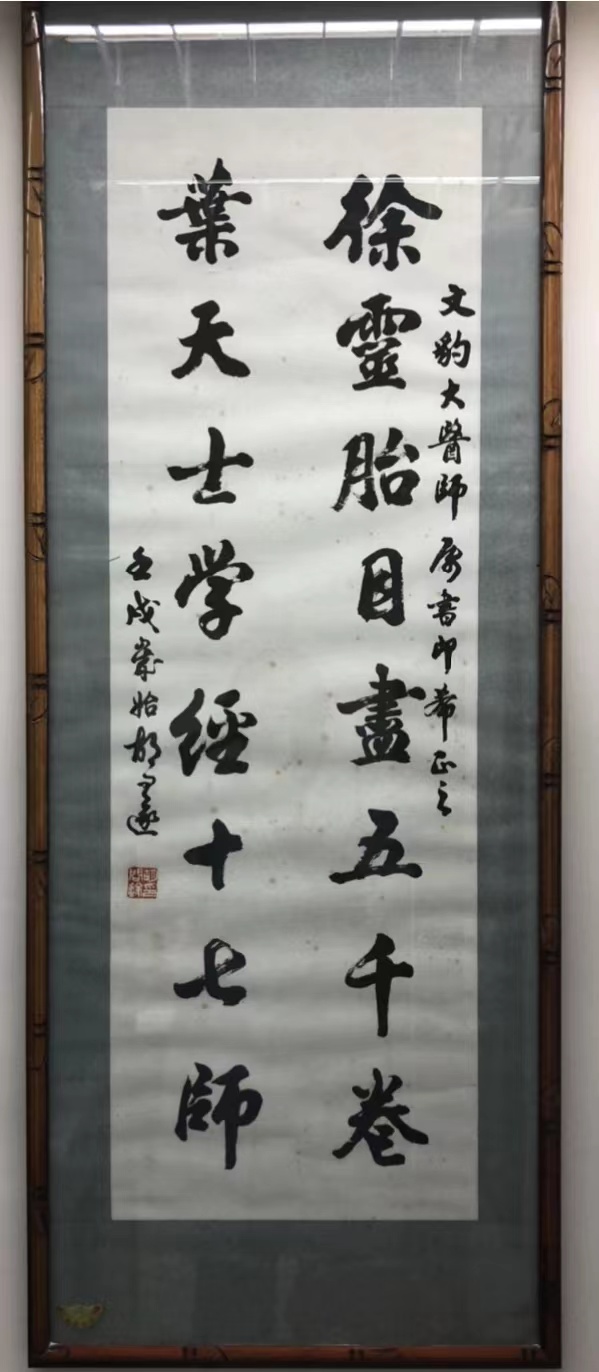 文豹大醫師属書即希正之
徐靈胎目盡五千卷
葉天士学經十七師
壬戌歲始胡